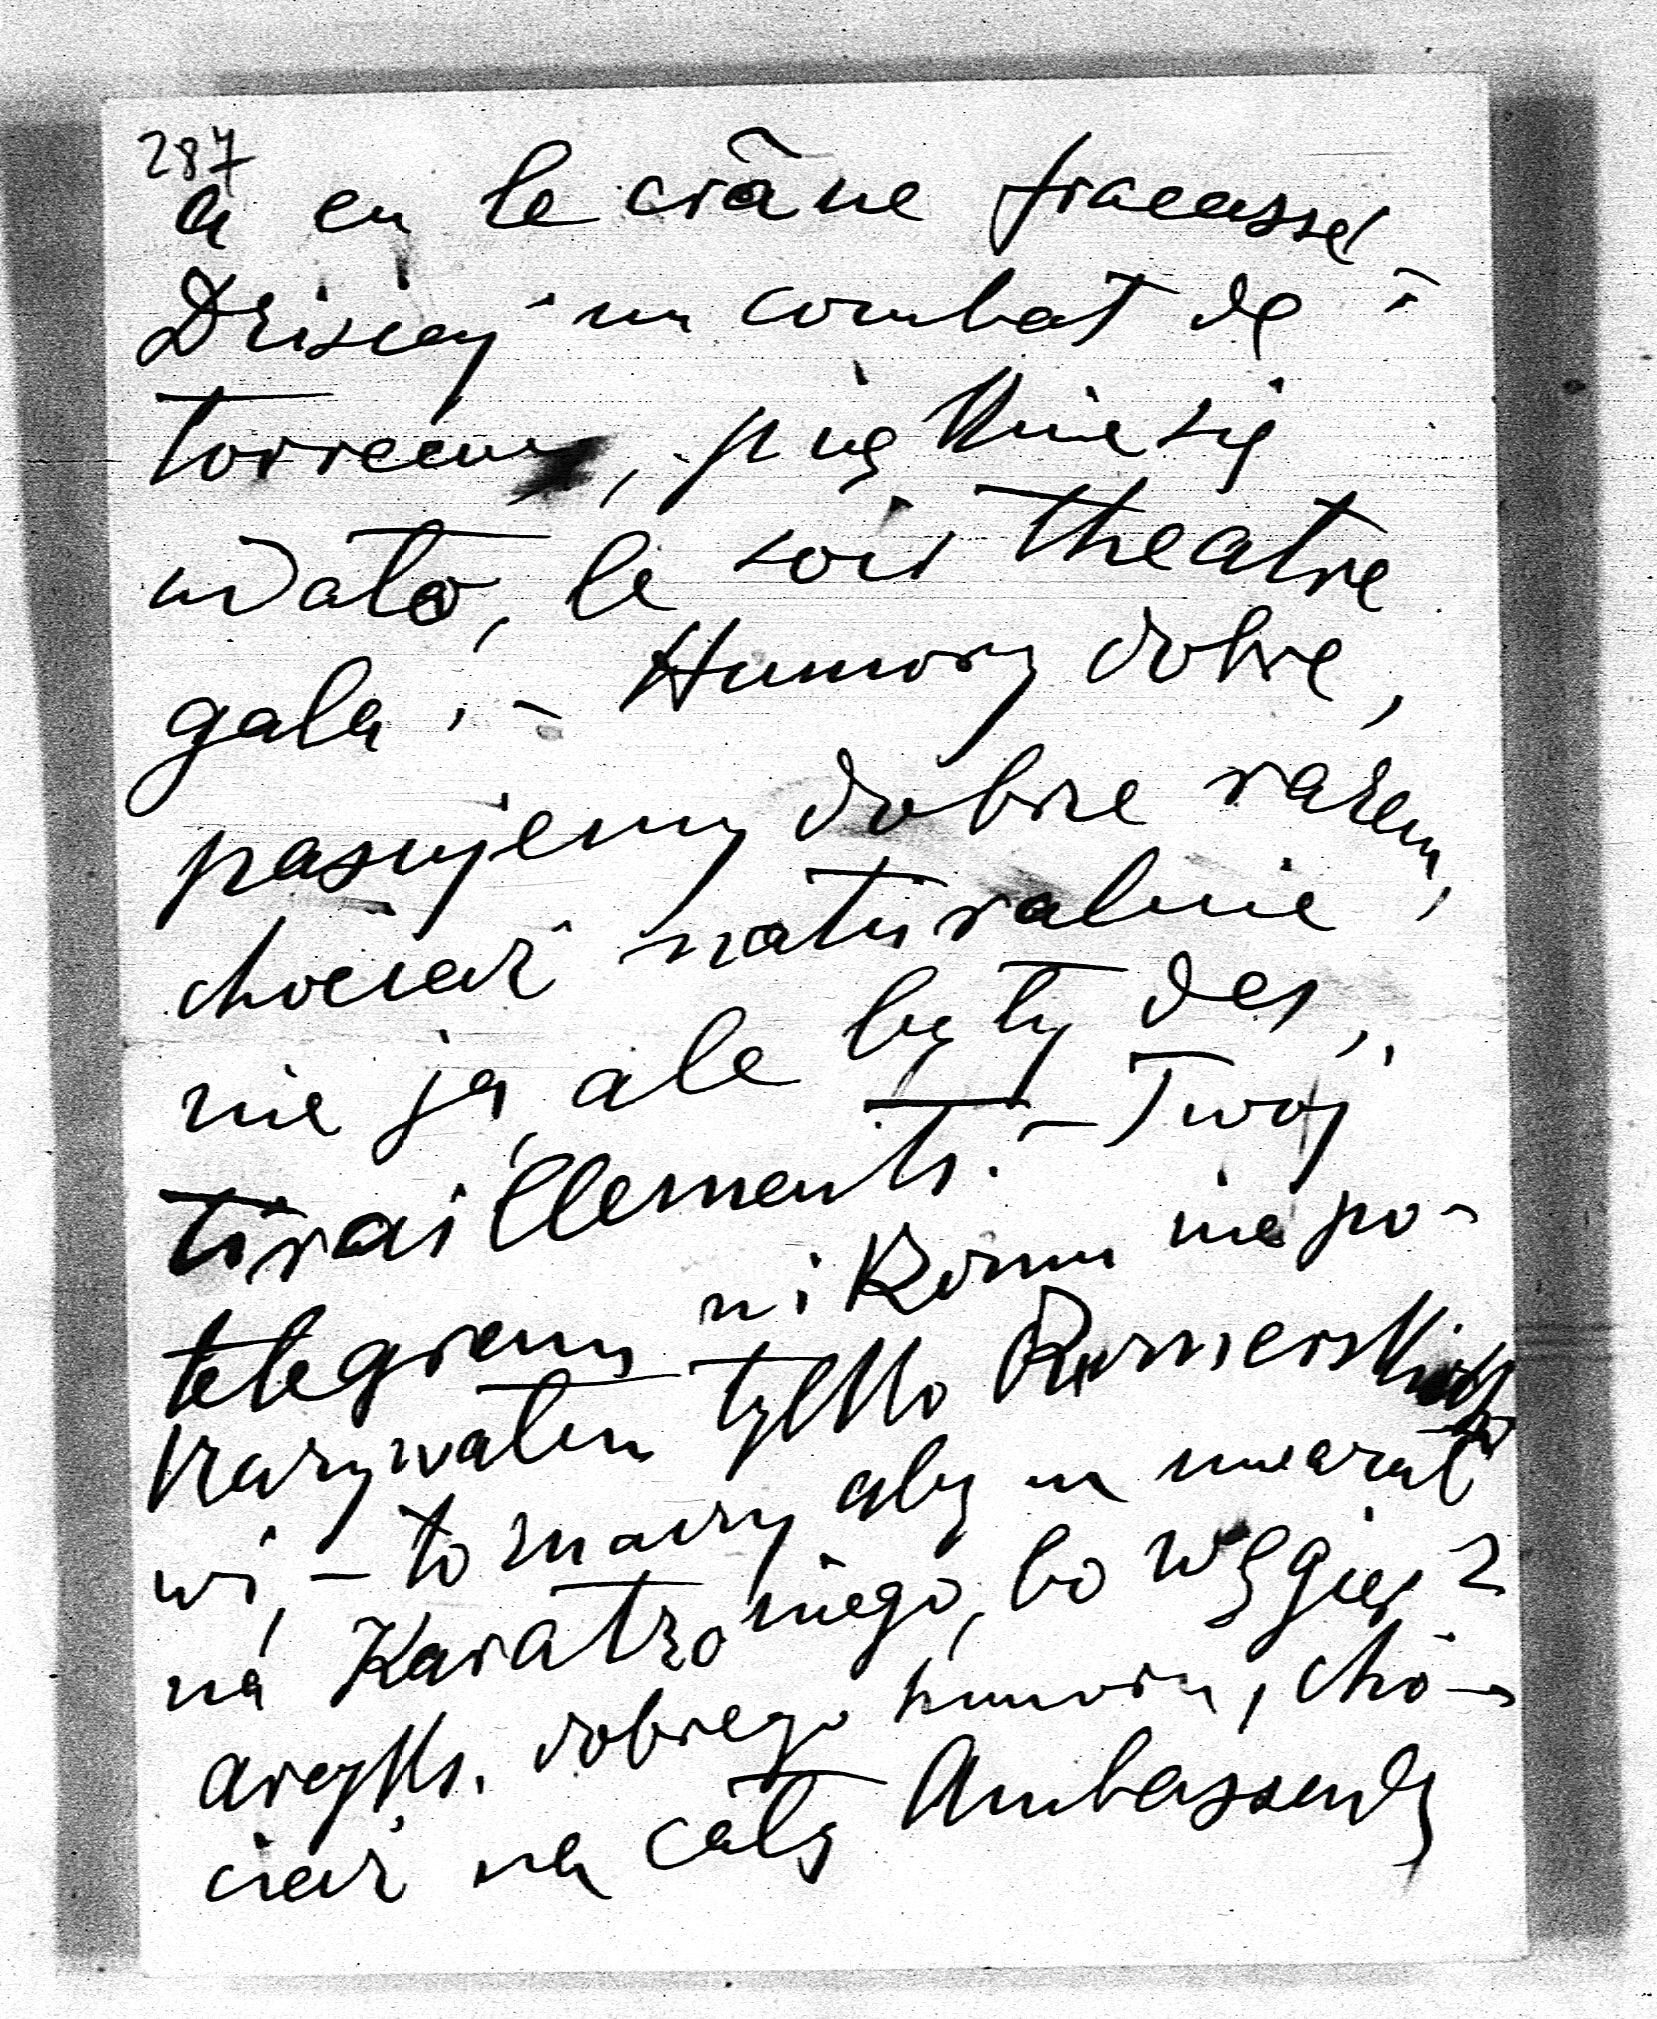 287
a eu le crâne fracassé
Dzisiaj un combat de
torreau, pięknie się
udało, le soir theatre
gala. – Humory dobre,
pasujemy dobrze razem,
chociaż naturalnie
nie ja, ale były des
tiraillements. – Twój
telegram nikomu nie po-
kazywałem tylko
wi, – to znaczy aby uważał
na niego, bo Węgier z
arcyks. dobrego humoru, cho-
ciaż na całą Ambassadę